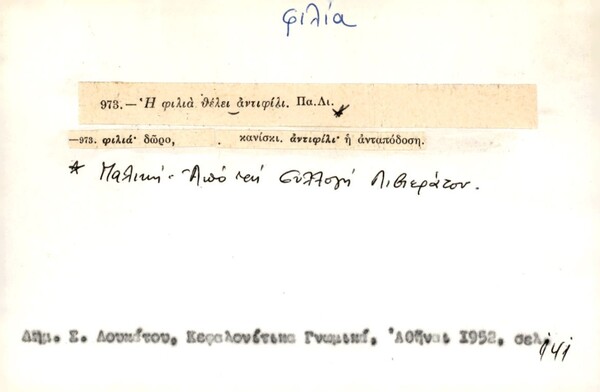 φιλία
973.—Ἡ φιλιὰ θέλει ἀντιφίλι. Πα.Λι.
—973. φιλιά· δῶρο, κανίσκι. ἀντιφίλι· ἡ ἀνταπόδοση.
* Παλική - Ἀπό τή συλλογή Λιβιεράτου.
Δημ. Σ. Λουκάτου, Κεφαλονίτικα Γνωμικά, Ἀθῆναι 1952, σελ. 141